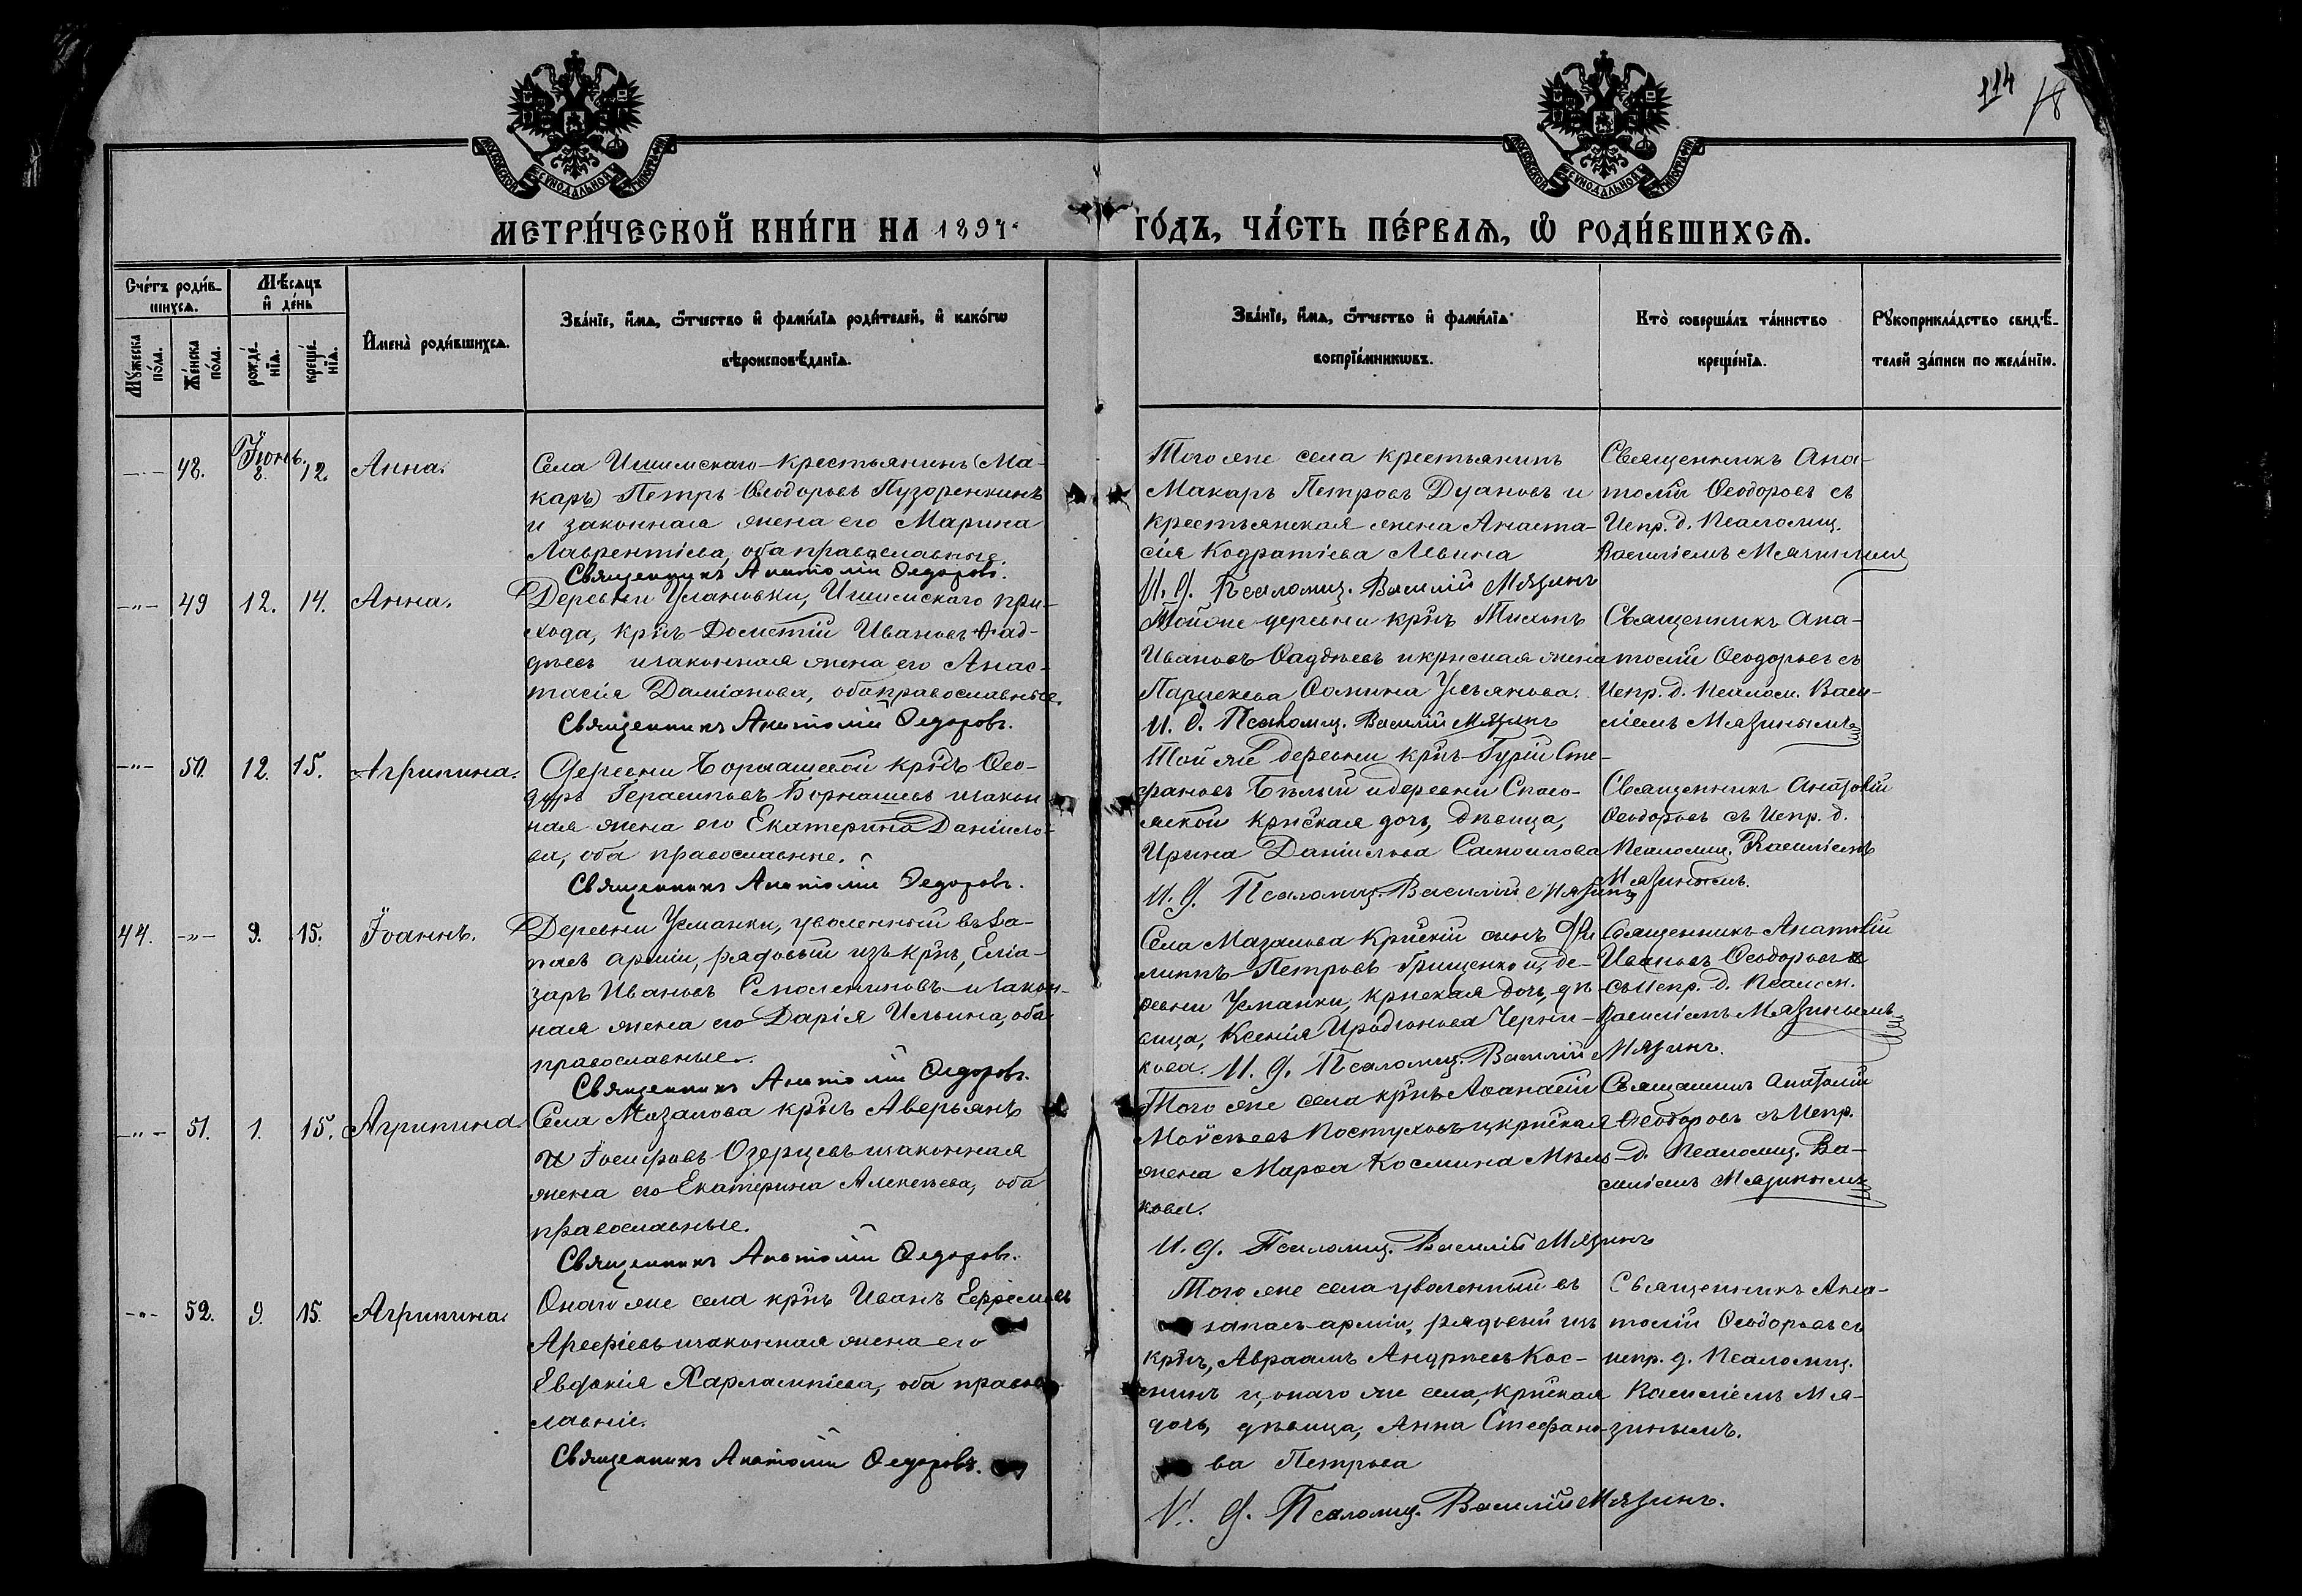 114
18
МОСКОВСКОЙ СѴНОДАЛЬНОЙ ТИПОГРАФІИ
МОСКОВСКОЙ СѴНОДАЛЬНОЙ ТИПОГРАФІИ
МЕТРИ́ЧЕСКОЙ КНИ́ГИ НА 1897. ГО́ДЪ, ЧА́СТЬ ПЕ́РВАѦ, Ѡ РОДИ́ВШИХСѦ.
Сче́тъ роди́в-
шихсѧ.
Мꙋжеска по́ла.
Же́нска по́ла.
Мѣ́сѧцъ и҆ де́нь
рожде́нїѧ.
креще́нїѧ.
И҆мена̀ роди́вшихсѧ.
Зва́нїе, и҆́мѧ, ѻ҆́тчество и҆ фами́лїѧ роди́телей, и҆ како́гѡ
вѣроисповѣ́данїѧ.
Зва́нїе, и҆́мѧ, ѻ҆́тчество и҆ фами́лїѧ
воспрїе́мникѡвъ.
Кто̀ соверша́лъ та́инство
креще́нїѧ.
Рꙋкоприкла́дство свидѣ́-
телей за́писи по жела́нїю.
Іюнь.
48. 8. 12. Анна.
Села Ишимскаго крестьянинъ (Ма-
каръ) Петръ Ѳеодоровъ Пузоренкинъ
и законная жена его Марина
Лаврентіева, оба православные
Священникъ Анатолій Ѳедоровъ.
Того же села крестьянинъ
Макаръ Петровъ Дуановъ и
крестьянская жена Анаста-
сія Кодратіева Левина
И. д. Псаломщ. Василій Мязинъ
Священникъ Ана-
толій Ѳеодоровъ съ
Испр. д. Псаломщ.
Василіемъ
— " — 49 12. 14. Анна.
Деревни Улановки, Ишимскаго при-
хода, кр҃нъ Дометій Ивановъ Ѳад-
дѣевъ и законная жена его Анас-
тасія Даміанова, оба православные.
Священникъ Анатолій Ѳедоровъ.
Той же деревни кр҃нъ Тихонъ
Ивановъ Ѳаддѣевъ и крнская жена
Ѳомина Ульянова.
И. д. Псаломщ. Василій Мязинъ
Священникъ Ана-
толій Ѳеодоровъ съ
Испр. д. Псалом. Васи-
ліемъ Мязинымъ
— " — 50. 12. 15. Агрипина.
Деревни кр҃нъ Ѳео-
доръ Герасимовъ Борнашевъ и закон
ная жена его Екатерина Даніило-
ва, оба православные.
Священникъ Анатолій Ѳедоровъ.
Той же деревни кр҃нъ Гурій Сте-
фановъ Бѣлый и деревни Спасо-
крнская дочь, дѣвица,
Ирина Даніилова Самоилова
И. д. Псаломщ. Василій Мязинъ
Священникъ Анатолій
Ѳеодоровъ съ Испр. д.
Псаломщ. Василіемъ
Мязинымъ.
44. — " — 9. 15. Іоаннъ.
Деревни Усманки, уволенный въ за-
пасъ арміи, рядовый изъ крнъ, Еліа-
заръ Ивановъ и закон-
ная жена его Дарія Ильина, оба
православные.
Священникъ Анатолій Ѳедоровъ.
Села Мазалова крнскій сынъ Фи
липпъ Петровъ Грищенко и, де-
ревни Усманки, крнская дочь, дѣ-
вица, Ксенія Иродіонова Черни-
кова. И. д. Псаломщ. Василій Мязинъ.
Священникъ Анатолій
Ивановъ Ѳеодоровъ
съ Испр. д. Псалом.
Василіемъ Мязинымъ
— " — 51. 1. 15. Агрипина
Села Мазалова кр҃нъ Аверьянъ
Іосифовъ Озерцевъ и законная
жена его Екатерина Алексѣева, оба
православные.
Священникъ Анатолій Ѳедоровъ.
Того же села кр҃нъ Аѳанасій
Моѵсѣевъ Постуховъ и крнская
жена Марѳа Космина Мѣль
кова.
И. д. Псаломщ. Василій Мязинъ
Священникъ Анатолій
Ѳеодоровъ съ Испр.
д. Псаломщ. Ва-
силіемъ Мязинымъ
— " — 52. 9. 15. Агрипина.
Онаго же села кр҃нъ Иванъ Ефремовъ
Арефіевъ и законная жена его
Евдокія Харлампіева, оба право
лавніе.
Священникъ Анатолій Ѳедоровъ.
Того же села уволенный въ
запасъ арміи, рядовый изъ
кр҃нъ, Авраамъ Андреевъ Кос-
минъ и, онаго же села, крнская
дочь, дѣвица, Анна Стефано-
ва Петрова
И. д. Псаломщ. Василій Мязинъ.
Священникъ Ана-
толій Ѳеодоровъ съ
испр. д. Псаломщ.
Василіемъ Мя-
зинымъ.